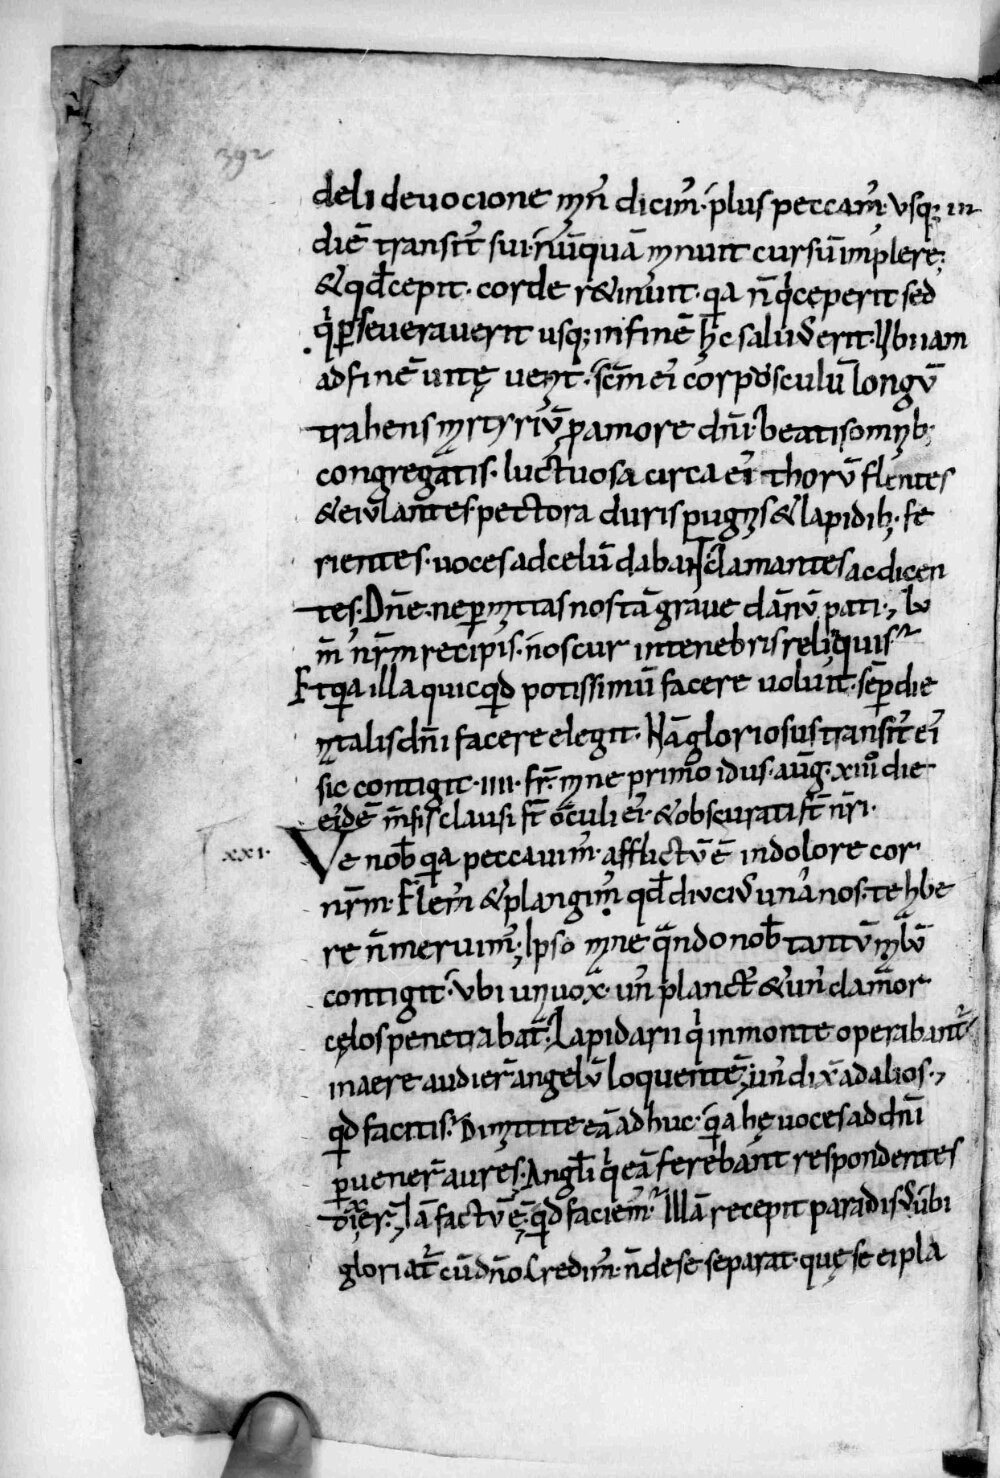 392
deli deuocione mīn̄ dicim̄. plus peccam̄. vsq; in
diē transit̄ sui. nūnquā minuit cursūm implere;
& qđ cepit. corde r&inuit. qa n̄ qi ceperit sed
qi perseuerauerit usq; in finē hic saluus erit. Ubi iam
ad finē uitę uenit. scm̄ ei corpusculū longū
trahens martyriū p amore dn̄i. beatis omnib;
congregatis. luctuosa circa ei thorū flentes
& eiulantes. pectora duris pugnis & lapidib; fe
rientes. uoces ad celū dabant clamantes ac dicen
tes. Dn̄e. ne permittas nos tā graue dānū pati. ; lu
m̄ nr̄m recipis. nos cur in tenebris reliquis
Et qa illa quicqđ potissimū facere uoluit. sēp die
natalis dn̄i facere elegit. Nā gloriosus transit̄ ei
sic contigit. IIII. fr̄. mane primo idus. aūg. XIIII die
eidē m̄sis clausi st̄ oculi ei. & obscurati st̄ nr̄i.
XXI. Ve nob̄ qa peccauim̄. afflictū ē in dolore cor
nr̄m. Flem̄ & plangim̄ qđ diucius una nos. te habe
re n̄ meruim̄; Ipso mane qando nob̄ tantū malū
contigit. ubi una uox. un̄ planct̄ & un̄ clamor
cęlos penetrabat̄. Lapidarii qi in monte operabant̄
in aere audier̄ angelū loquentē; un̄ dix̄ ad alios.;
qđ facitis. Dimittite eā adhuc. qia hę uoces ad dn̄i
peruener̄ aures. Angl̄i qi eā ferebant respondentes
dixer̄; Iā factū ē; qđ faciem̄ Illā recepit paradisus ubi
gloriat̄ cū dn̄o. Credim̄. n̄ de se separat. quę se ei pla